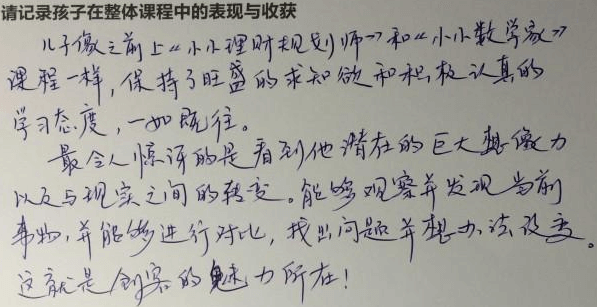 请记录孩子在整体课程中的表现与收获
儿子像之前上“小小理财规划师”和“小小数学家”
课程一样，保持了旺盛的求知欲和积极认真的
学习态度，一如既往。
最令人惊讶的是看到他潜在的巨大想像力
以及与现实之间的转变。能够观察并发现当前
事物，并能够进行对比，找出问题并想办法改变。
这就是创客的魅力所在！